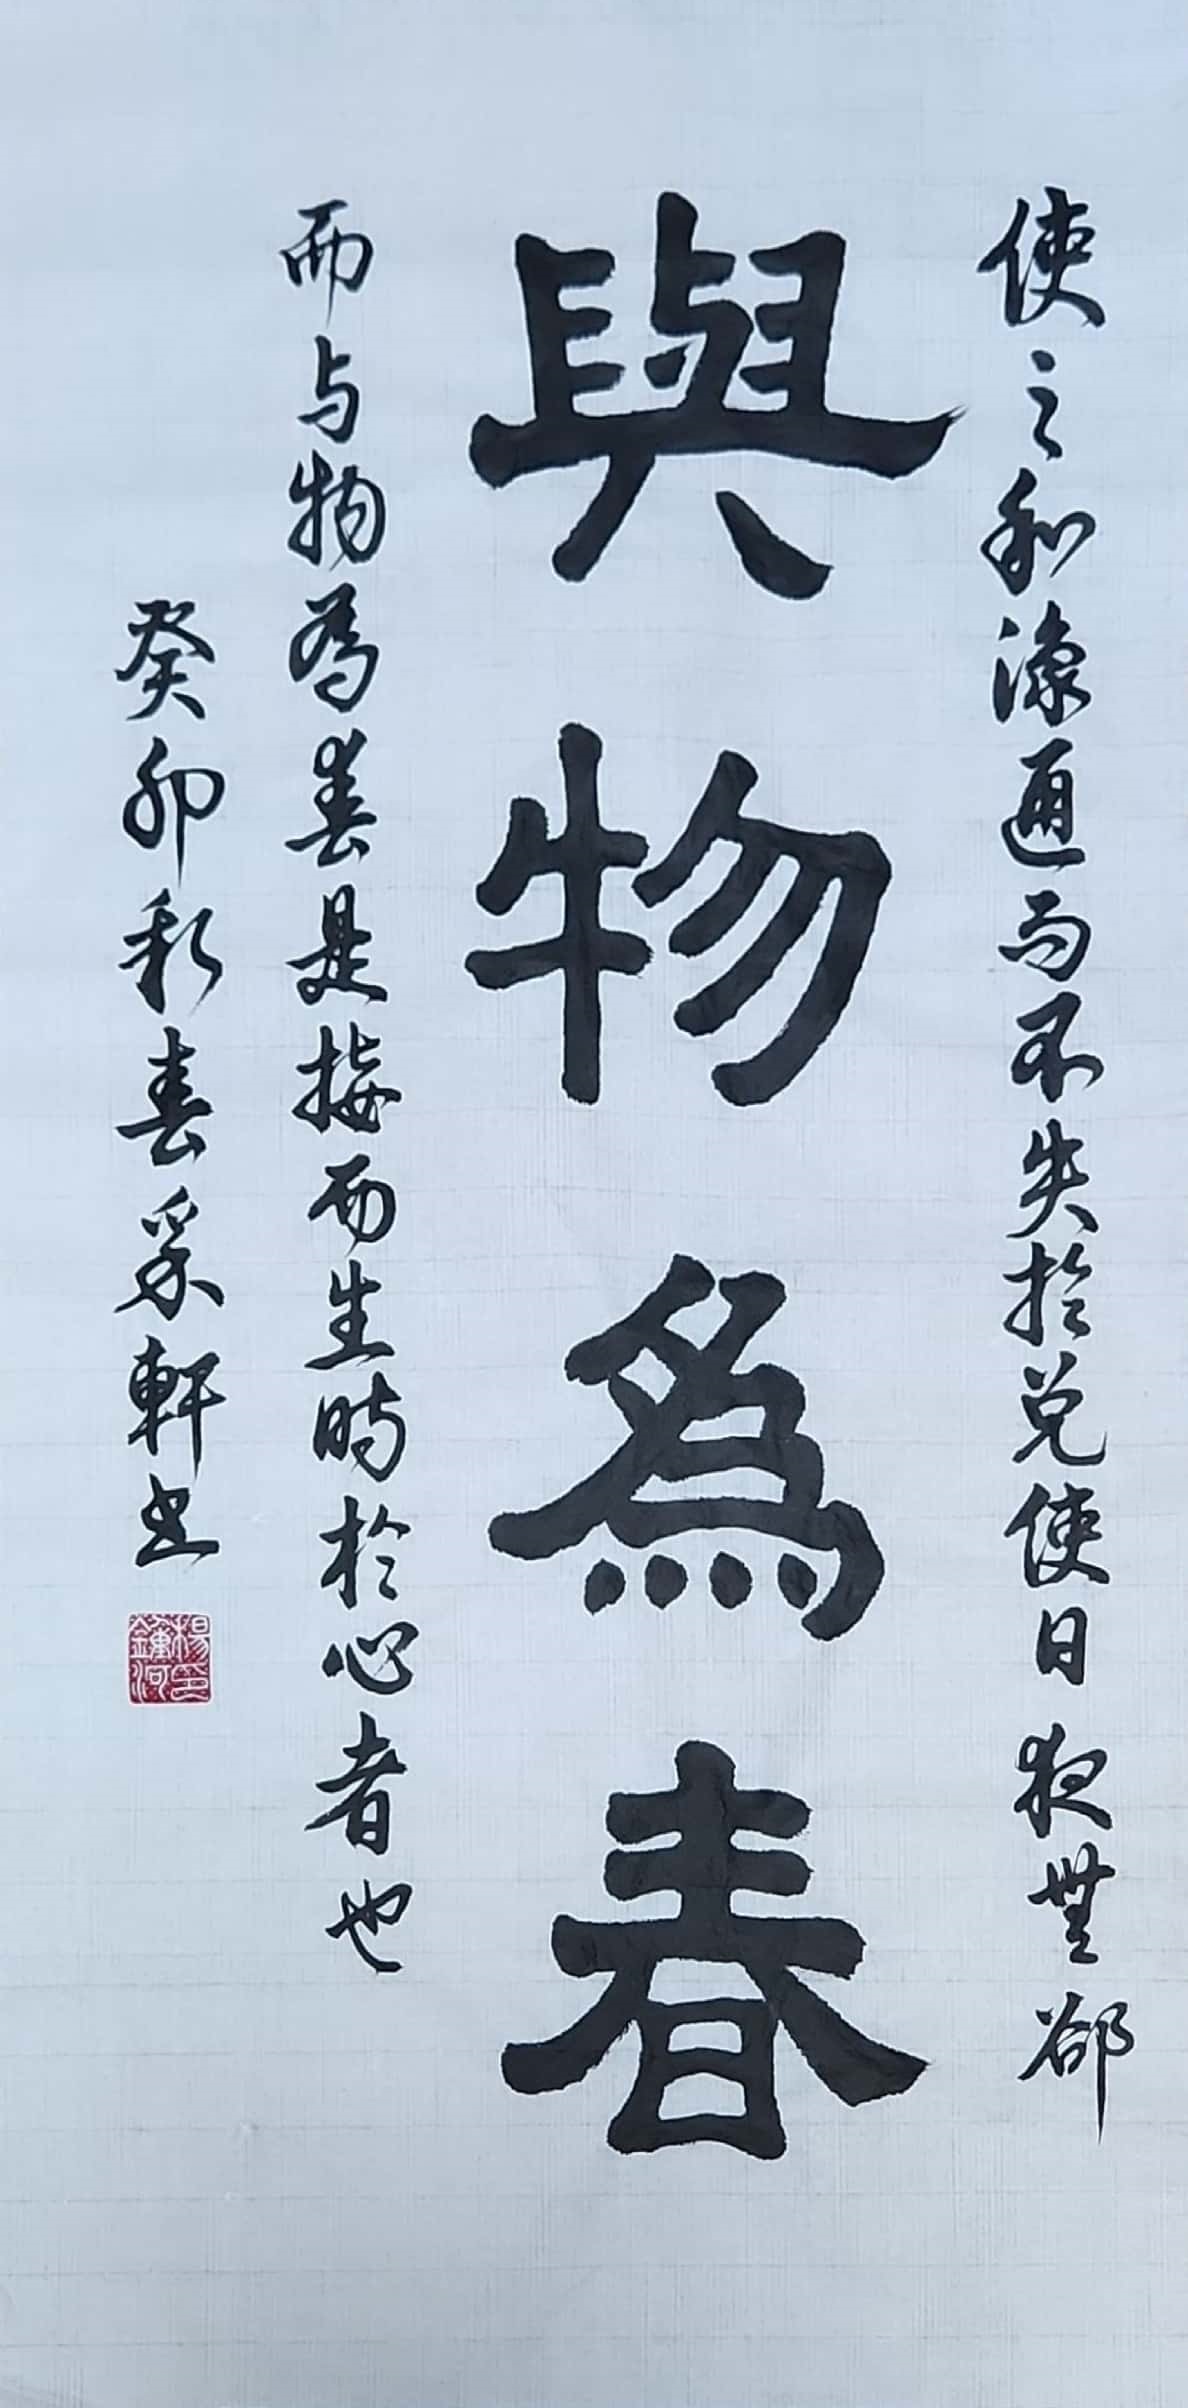 使之和豫通而不失於兌使日夜無郤
與物為春
而与物為春是接而生時於心者也
癸卯新春采軒书